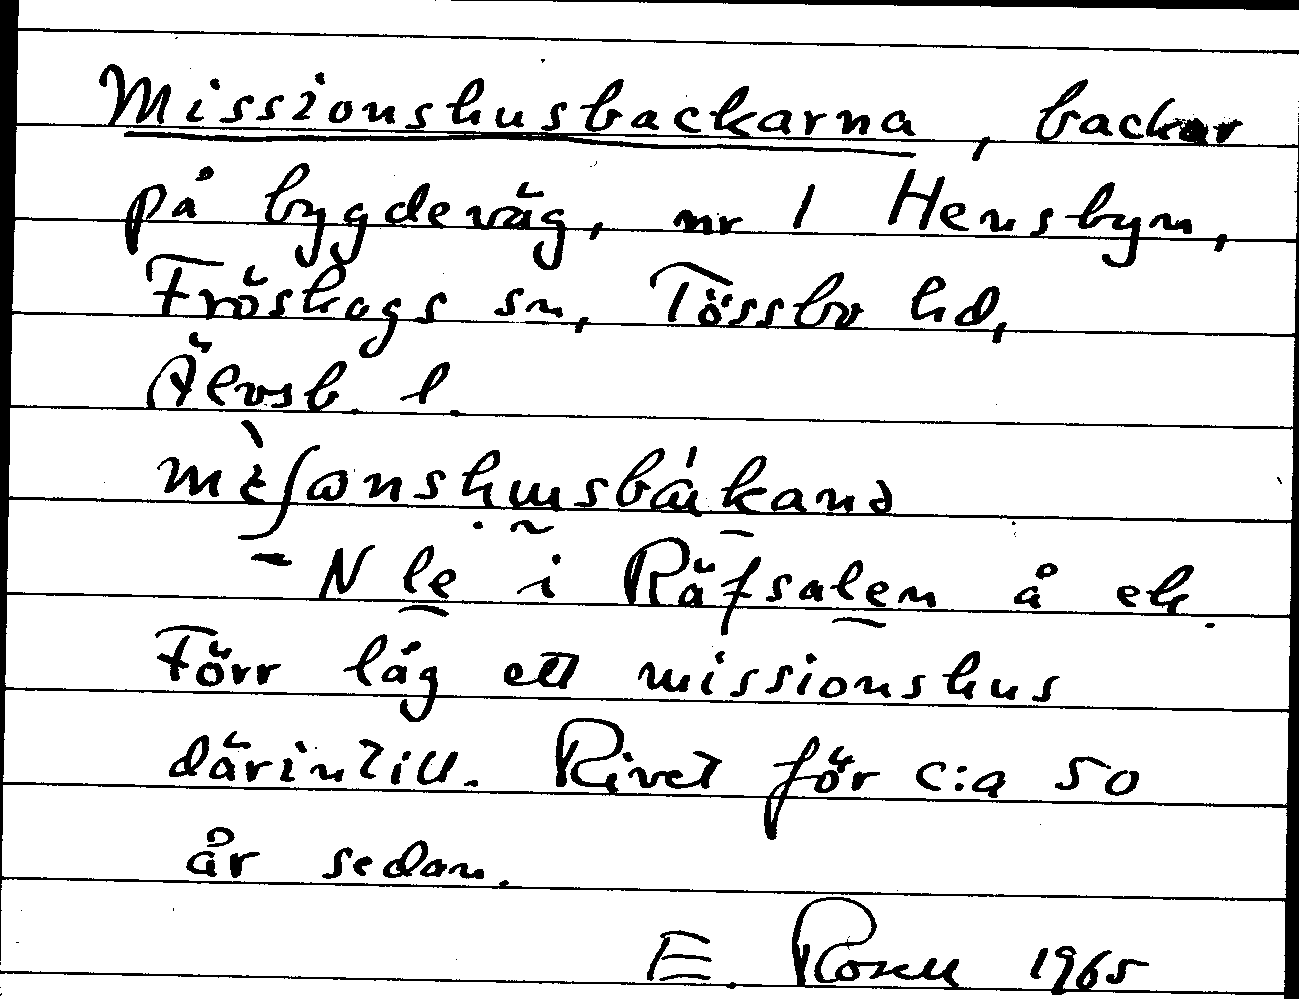 Missionshusbackarna, backar
på bygdeväg, nr 1 Hensbyn,
Fröskogs sn, Tössbo hd,
Älvsb. l.
- N le i Räfsalen å ek.
Förr låg ett missionshus
därintill. Rivet för c:a 50
år sedan.
E. Rosell 1965